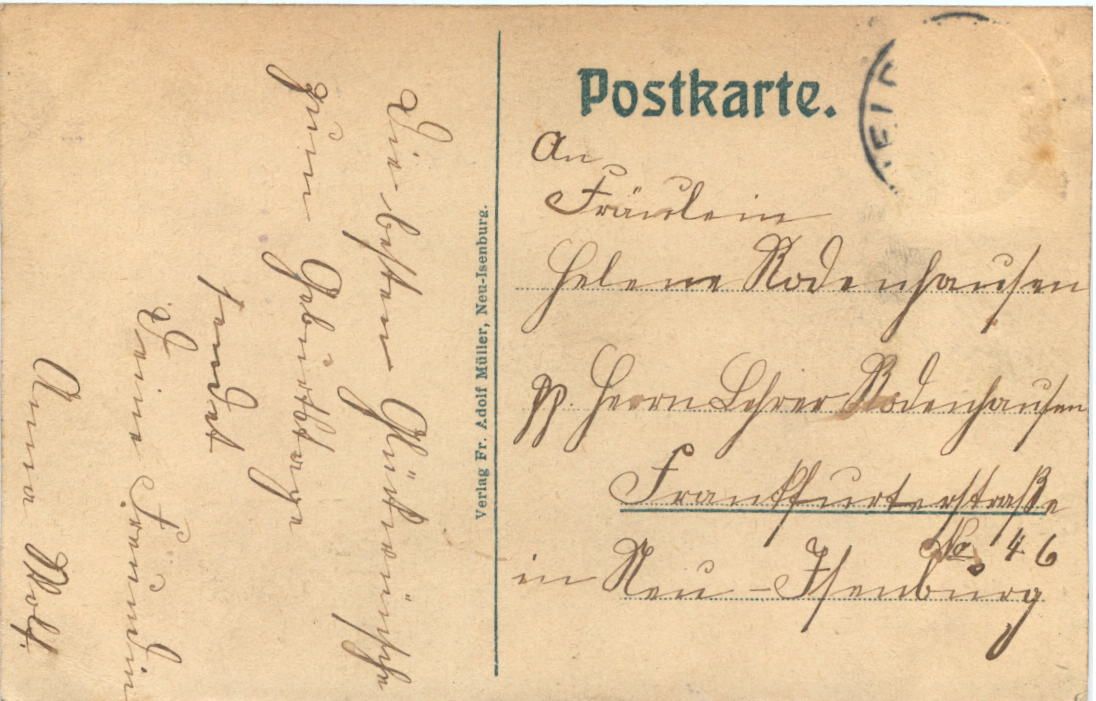 Die besten Glückwünsche
zum Geburtstage
sendet
Deine Freundin
Anna Wolf.
Verlag Fr. Adolf Müller, Neu-Isenburg.
Postkarte.
An
Fräulein
Helene Rodenhausen
pp. Herrn Lehrer Rodenhausen
Frankfurterstraße
No 46
in Neu-Isenburg